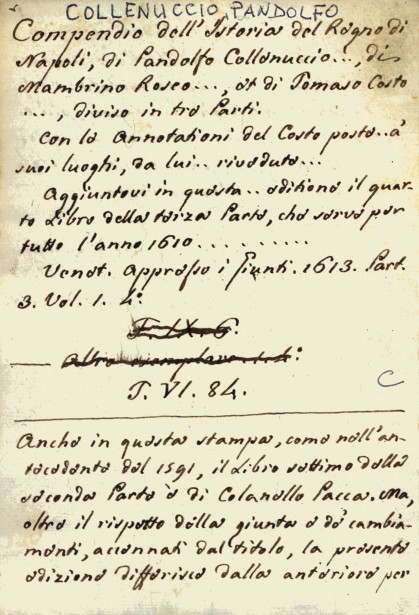 COLLENUCCIO, PANDOLFO
Compendio dell'Istoria del Regno di
Napoli, di Pandolfo Collenuccio..., di
Mambrino Roseo..., et di Tomaso Costo
..., diviso in tre Parti.
Con le Annotationi del Costo poste.. a'
suoi luoghi, da lui.. rivedute...
Aggiuntovi in questa.. editione il quar-
to Libro della terza Parte, che serve per
tutto l'anno 1610..........
Venet. appresso i Giunti. 1613. Part.
3. Vol. 1. 4.º
T. IX. 6.
Altro esemplare. 1. 4.º
T. VI. 84.
C
Anche in questa stampa, come nell'an-
tecedente del 1591, il Libro settimo della
seconda Parte è di Colanello Pacca. Ma,
oltre il rispetto della giunta e de' cambia-
menti, accennati dal titolo, la presente
edizione differisce dalla anteriore per